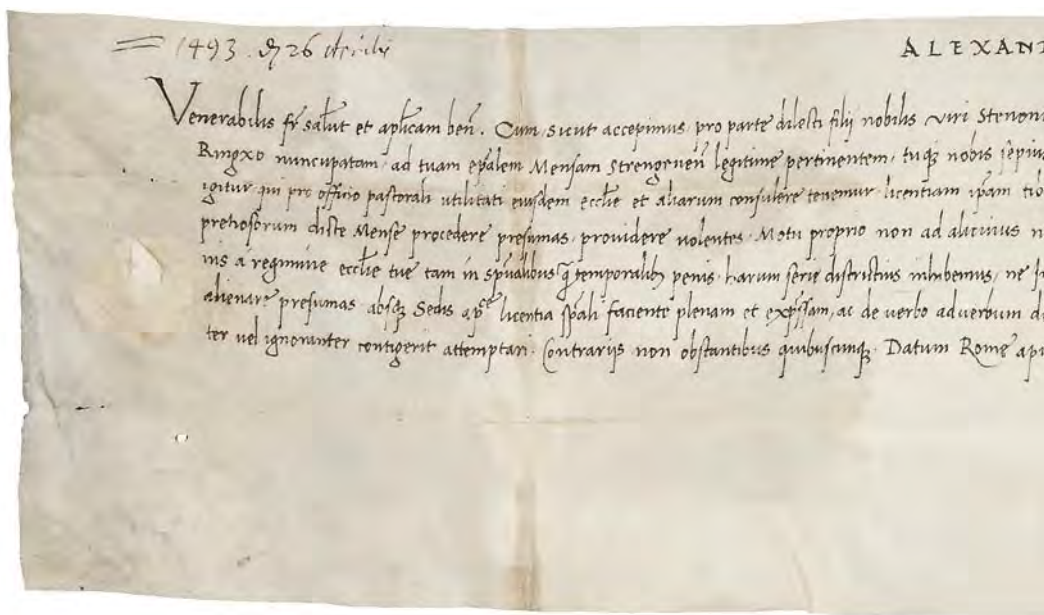 1493. 26 Aprilis
ALEXANT
Venerabilis fr̄ salut̄ et apl̄icam ben̄. Cum, sicut accepimus, pro parte dilecti filij nobilis viri Stenon
Ringxo nuncupatam, ad tuam ep̄alem Mensam Strengenen̄ legitime pertinentem, tuq; nobis sepius
igitur, qui pro officio pastorali utilitati eiusdem eccl̄ie et aliarum consulere tenemur, licentiam ip̄am tibi
pretiosorum dicte Mense procedere presumas, providere volentes, Motu proprio non ad alicuius
nis a regimine eccl̄ie tue tam in sp̄ualibus q̄ temporalib; penis, harum serie districtius inhibemus, ne
alienare presumas, absq; Sedis ap̄ce licentia sp̄ali faciente plenam et exp̄ssam, ac de verbo adverbum
ter vel ignoranter contigerit attemptari. Contrarijs non obstantibus quibuscunq;. Datum Rome apu